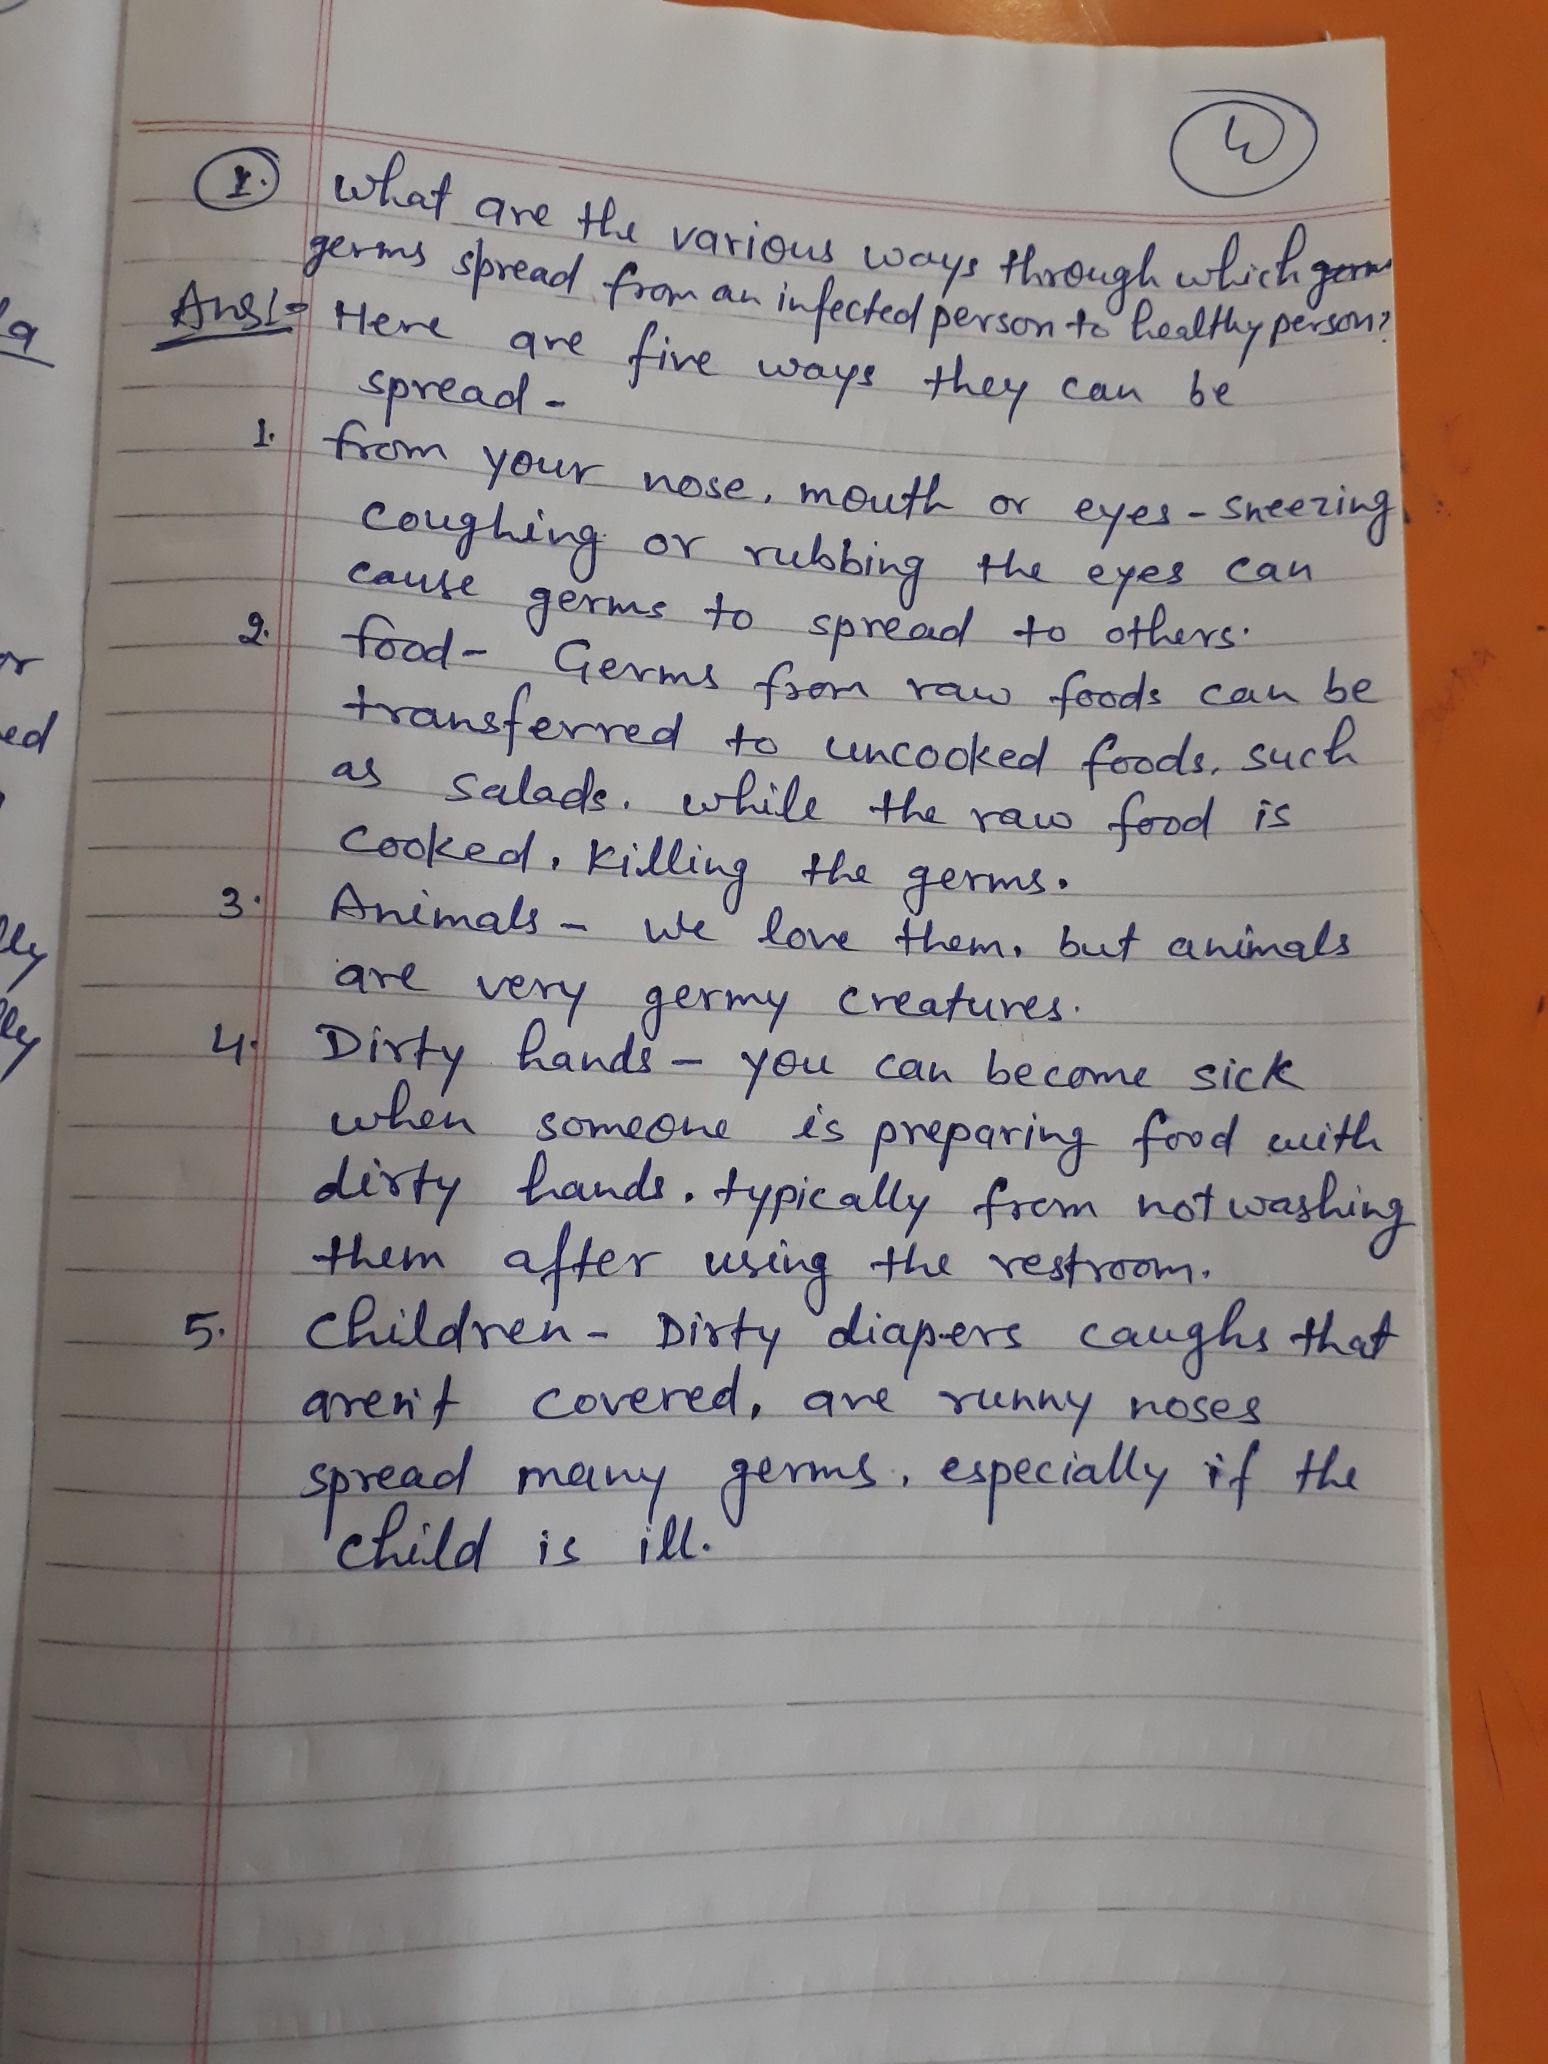 1. What are the various ways through which germs
germs spread from an infected person to healthy person?
Ans1- Here are five ways they can be
spread -
1. from your nose, mouth or eyes - Sneezing
Coughing or rubbing the eyes can
cause germs to spread to others.
2. food - Germs from raw foods can be
transferred to uncooked foods, such
as salads. while the raw food is
Cooked, killing the germs.
3. Animals - we love them, but animals
are very germy creatures.
4. Dirty hands - you can become sick
when someone is preparing food with
dirty hands, typically from not washing
them after using the restroom.
5. Children - Dirty diapers caughs that
aren't covered, are runny noses
spread many germs, especially if the
child is ill.